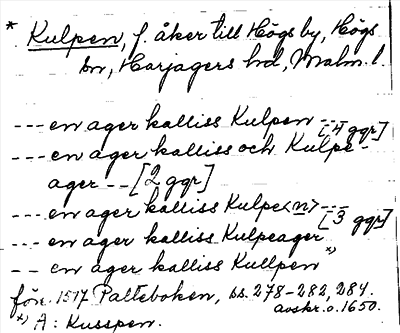 * Kulpen, f. åker till Högs by, Högs
sn, Harjagers hd, Malm. l.
--- en ager kalliss Kulpen --- [4 ggr]
--- en ager kalliss och Kulpe-
ager -- [2 ggr]
--- en ager kalliss Kulpe<n> --- [3 ggr]
--- en ager kalliss Kulpeager
-- en ager kalliss Kullpen x)
för. 1517 Palteboken, ss. 278-282, 284.
avskr. o. 1650.
x) A: Kusspen.